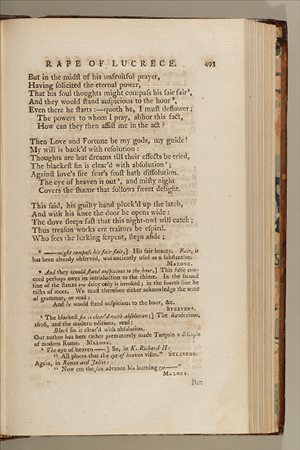 RAPE OF LUCRECE. 493
But in the midst of his unfruitful prayer,
Having solicited the eternal power,
That his foul thoughts might compass his fair fair,
And they would stand auspicious to the hour,
Even there he starts:—quoth he, I must deflower;
The powers to whom I pray, abhor this fact,
How can they then assist me in the act?
Then Love and Fortune be my gods, my guide!
My will is back'd with resolution:
Thoughts are but dreams till their effects be tried,
The blackest sin is clear'd with absolution;
Against love's fire fear's frost hath dissolution.
The eye of heaven is out, and misty night
Covers the shame that follows sweet delight.
This said, his guilty hand pluck'd up the latch,
And with his knee the door he opens wide:
The dove sleeps fast that this night-owl will catch;
Thus treason works ere traitors be espied.
Who sees the lurking serpent, steps aside;
— might compass his fair fair,] His fair beauty. Fair, it
has been already observed, was anciently used as a substantive.
MALONE.
And they would stand auspicious to the hour,] This false con-
cord perhaps owes its introduction to the rhime. In the second
line of the stanza one deity only is invoked; in the fourth line he
talks of more. We must therefore either acknowledge the want
of grammar, or read:
And he would stand auspicious to the hour, &c.
STEEVENS.
The blackest sin is clear'd with absolution;] The duodecimo,
and the modern editions, read:
Black sin is clear'd with absolution.
Our author has here rather prematurely made Tarquin a disciple
of modern Rome. MALONE.
The eye of heaven—] So, in K. Richard II:
"All places that the eye of heaven visits." STEEVENS.
Again, in Romeo and Juliet:
"Now ere the sun advance his burning eye—"
MALONE.